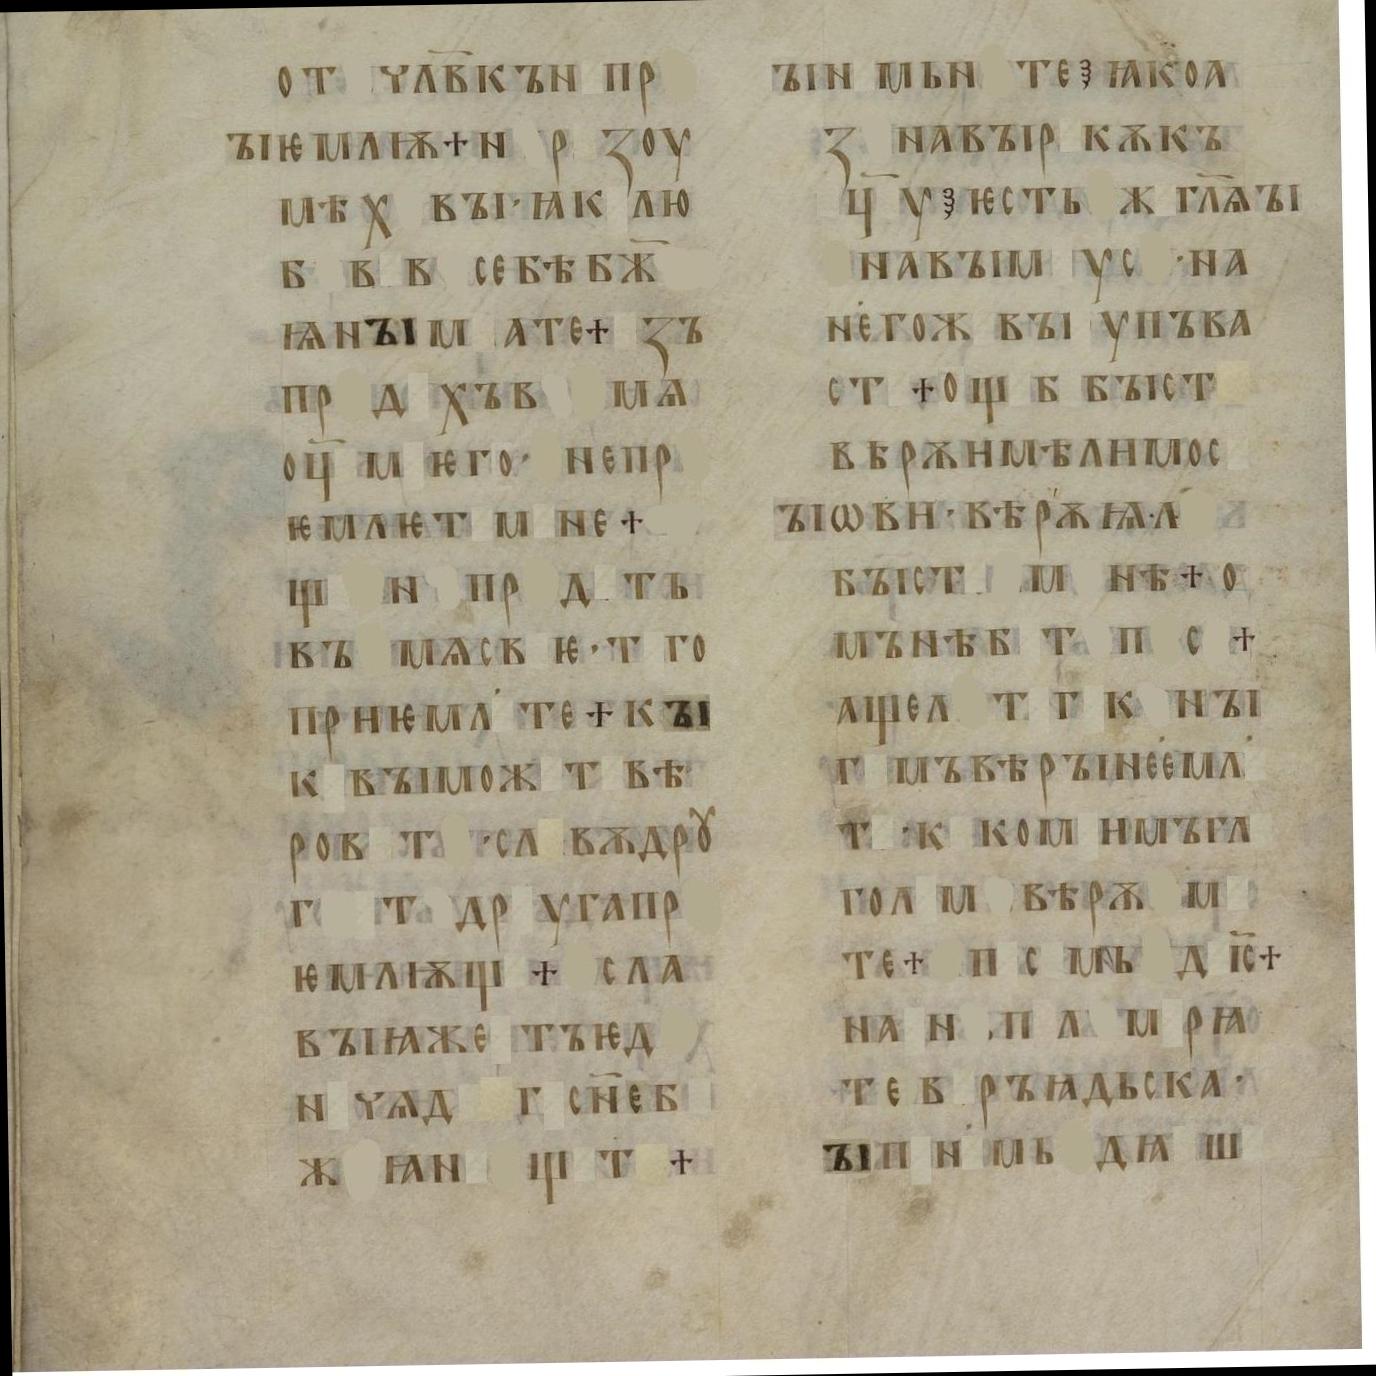 от чл҃вкън пр
ъіѥмлѭ+н р зоу
мѣх въі·ꙗк лю
б в в себѣбж҃
ꙗнъім ате+ зъ
пр д хъв мѧ
оц҃ м ѥго· непр
ѥмлѥт м не+
щ н пр д тъ
въ мѧсв ѥ·т го
прнѥмл те+къі
к въімож т вѣ
ров т ·сл вѫдрꙋ
г т др угапр
ѥмлѭщ + сла
въіꙗже тъѥд
н чѧд г сн҃еб
ж ꙗн щ т +
ъін мьн теꙁꙗкоа
з навъір кѫкъ
ц҃ уꙁѥсть ж гл҃ѧъі
навъім ус ·на
негож въі упъва
ст +ощ б бъіст
вѣрѫнмѣлнмос
ъіѡвн·вѣрѫꙗ·л
бъіст м нѣ+о
мънѣб т п с +
ащел т г к нъі
г мъвѣръінеемл
т ·к ком нмъгл
гол м вѣрѫ м
те+ п с мь д іс҃+
на н п л м рꙗ
те в ръꙗдьска·
ъіп н мь дꙗ ш